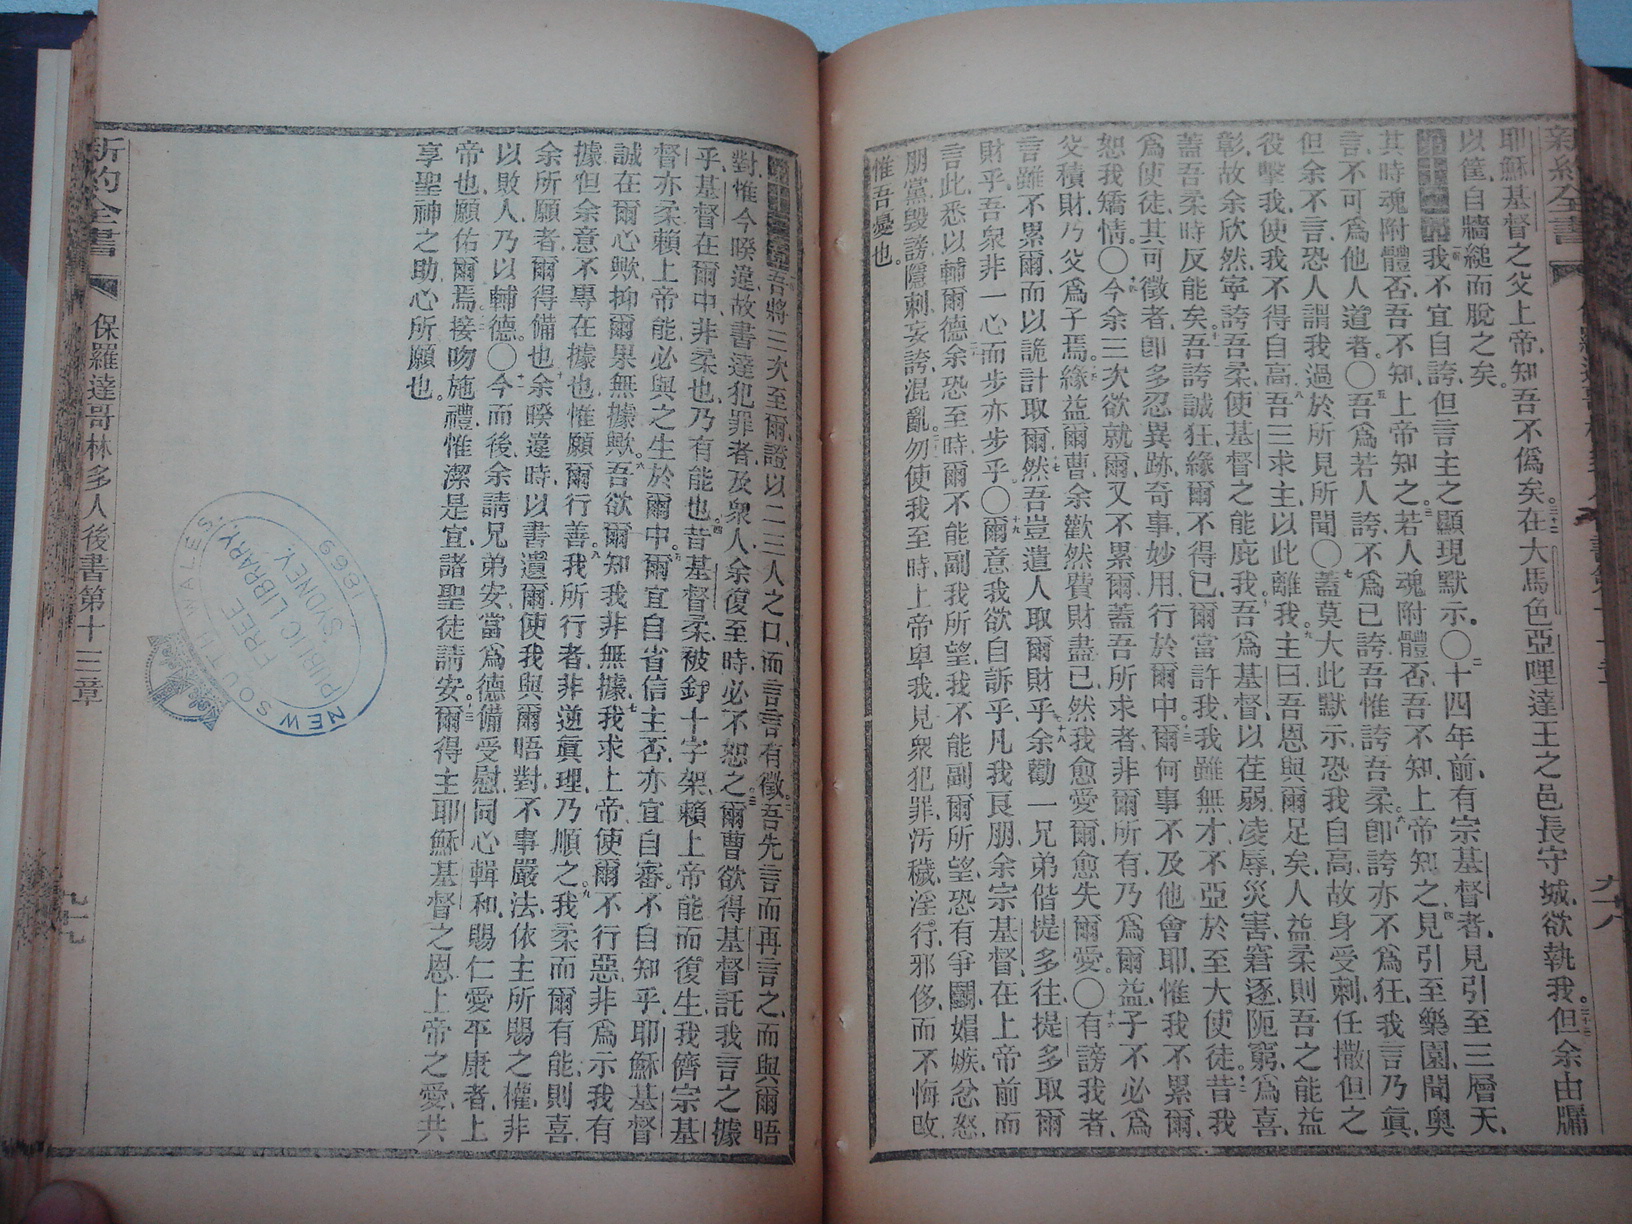 新約全書
耶穌基督之父上帝、知吾不僞矣。三十二在大馬色亞哩達王之邑長守城、欲執我。三十三但余由牖
以筐、自牆縋而脫之矣。
我不宜自誇、但言主之顯現默示。〇二十四年前、有宗基督者、見引至三層天、
其時魂附體否、吾不知、上帝知之。三若人魂附體否、吾不知、上帝知之、四見引至樂園、聞奧
言、不可爲他人道者。〇五吾爲若人誇、不爲己誇、吾惟誇吾柔。六卽誇亦不爲狂、我言乃眞、
但余不言、恐人謂我過於所見所聞〇七蓋莫大此默示、恐我自高、故身受刺、任撒但之
役擊我、使我不得自高、八吾三求主、以此離我。九主曰、吾恩與爾足矣、人益柔、則吾之能益
彰、故余欣然、寧誇吾柔、使基督之能庇我。十吾爲基督、以荏弱、凌辱、災害、窘逐、阨窮、爲喜、
蓋吾柔時反能矣。十一吾誇誠狂、緣爾不得已、爾當許我、我雖無才、不亞於至大使徒。十二昔我
爲使徒、其可徵者、卽多忍、異跡、奇事、妙用、行於爾中。十三爾何事不及他會耶、惟我不累爾、
恕我矯情。〇十四今余三次欲就爾、又不累爾、蓋吾所求者、非爾所有、乃爲爾益、子不必爲
父積財、乃父爲子焉。十五緣益爾曹、余歡然費財盡已、然我愈愛爾、愈失爾愛。〇十六有謗我者、
言雖不累爾、而以詭計取爾、十七然吾豈遣人取爾財乎、十八余勸一兄弟偕提多往、提多取爾
財乎、吾衆非一心而步亦步乎。〇十九爾意我欲自訴乎、凡我良朋、余宗基督、在上帝前而
言此、悉以輔爾德、二十余恐至時、爾不能副我所望、我不能副爾所望、恐有爭鬬、媢嫉、忿怒、
朋黨、毀謗、隱刺、妄誇、混亂、二十一勿使我至時、上帝卑我、見衆犯罪、汚穢、淫行、邪侈、而不悔改、
惟吾憂也。
九十八
吾將三次至爾、證以二三人之口、而言言有徵。二吾先言而再言之、而與爾晤
對、惟今暌違、故書達犯罪者、及衆人、余復至時、必不恕之。三爾曹欲得基督託我言之據
乎、基督在爾中、非柔也、乃有能也、四昔基督柔、被釘十字架、賴上帝能而復生、我儕宗基
督亦柔、賴上帝能、必與之生於爾中。五爾宜自省、信主否、亦宜自審、不自知乎、耶穌基督
誠在爾心歟、抑爾果無據歟。六吾欲爾知我非無據、七我求上帝、使爾不行惡、非爲示我有
據、但余意不專在據也、惟願爾行善。八我所行者、非逆眞理、乃順之。九我柔而爾有能、則喜、
余所願者、爾得備也、十余暌違時、以書遺爾、使我與爾晤對、不事嚴法、依主所賜之權、非
以敗人、乃以輔德。〇十一今而後、余請兄弟安、當爲德備、受慰、同心、輯和、賜仁愛平康者、上
帝也、願佑爾焉。十二接吻施禮、惟潔是宜、諸聖徒請安。十三爾得主耶穌基督之恩、上帝之愛、共
享聖神之助、心所願也。
新約全書
保羅達哥林多人後書第十三章
九十九
NEW SOUTH WALES.
FREE
PUBLIC LIBRARY,
SYDNEY.
1869